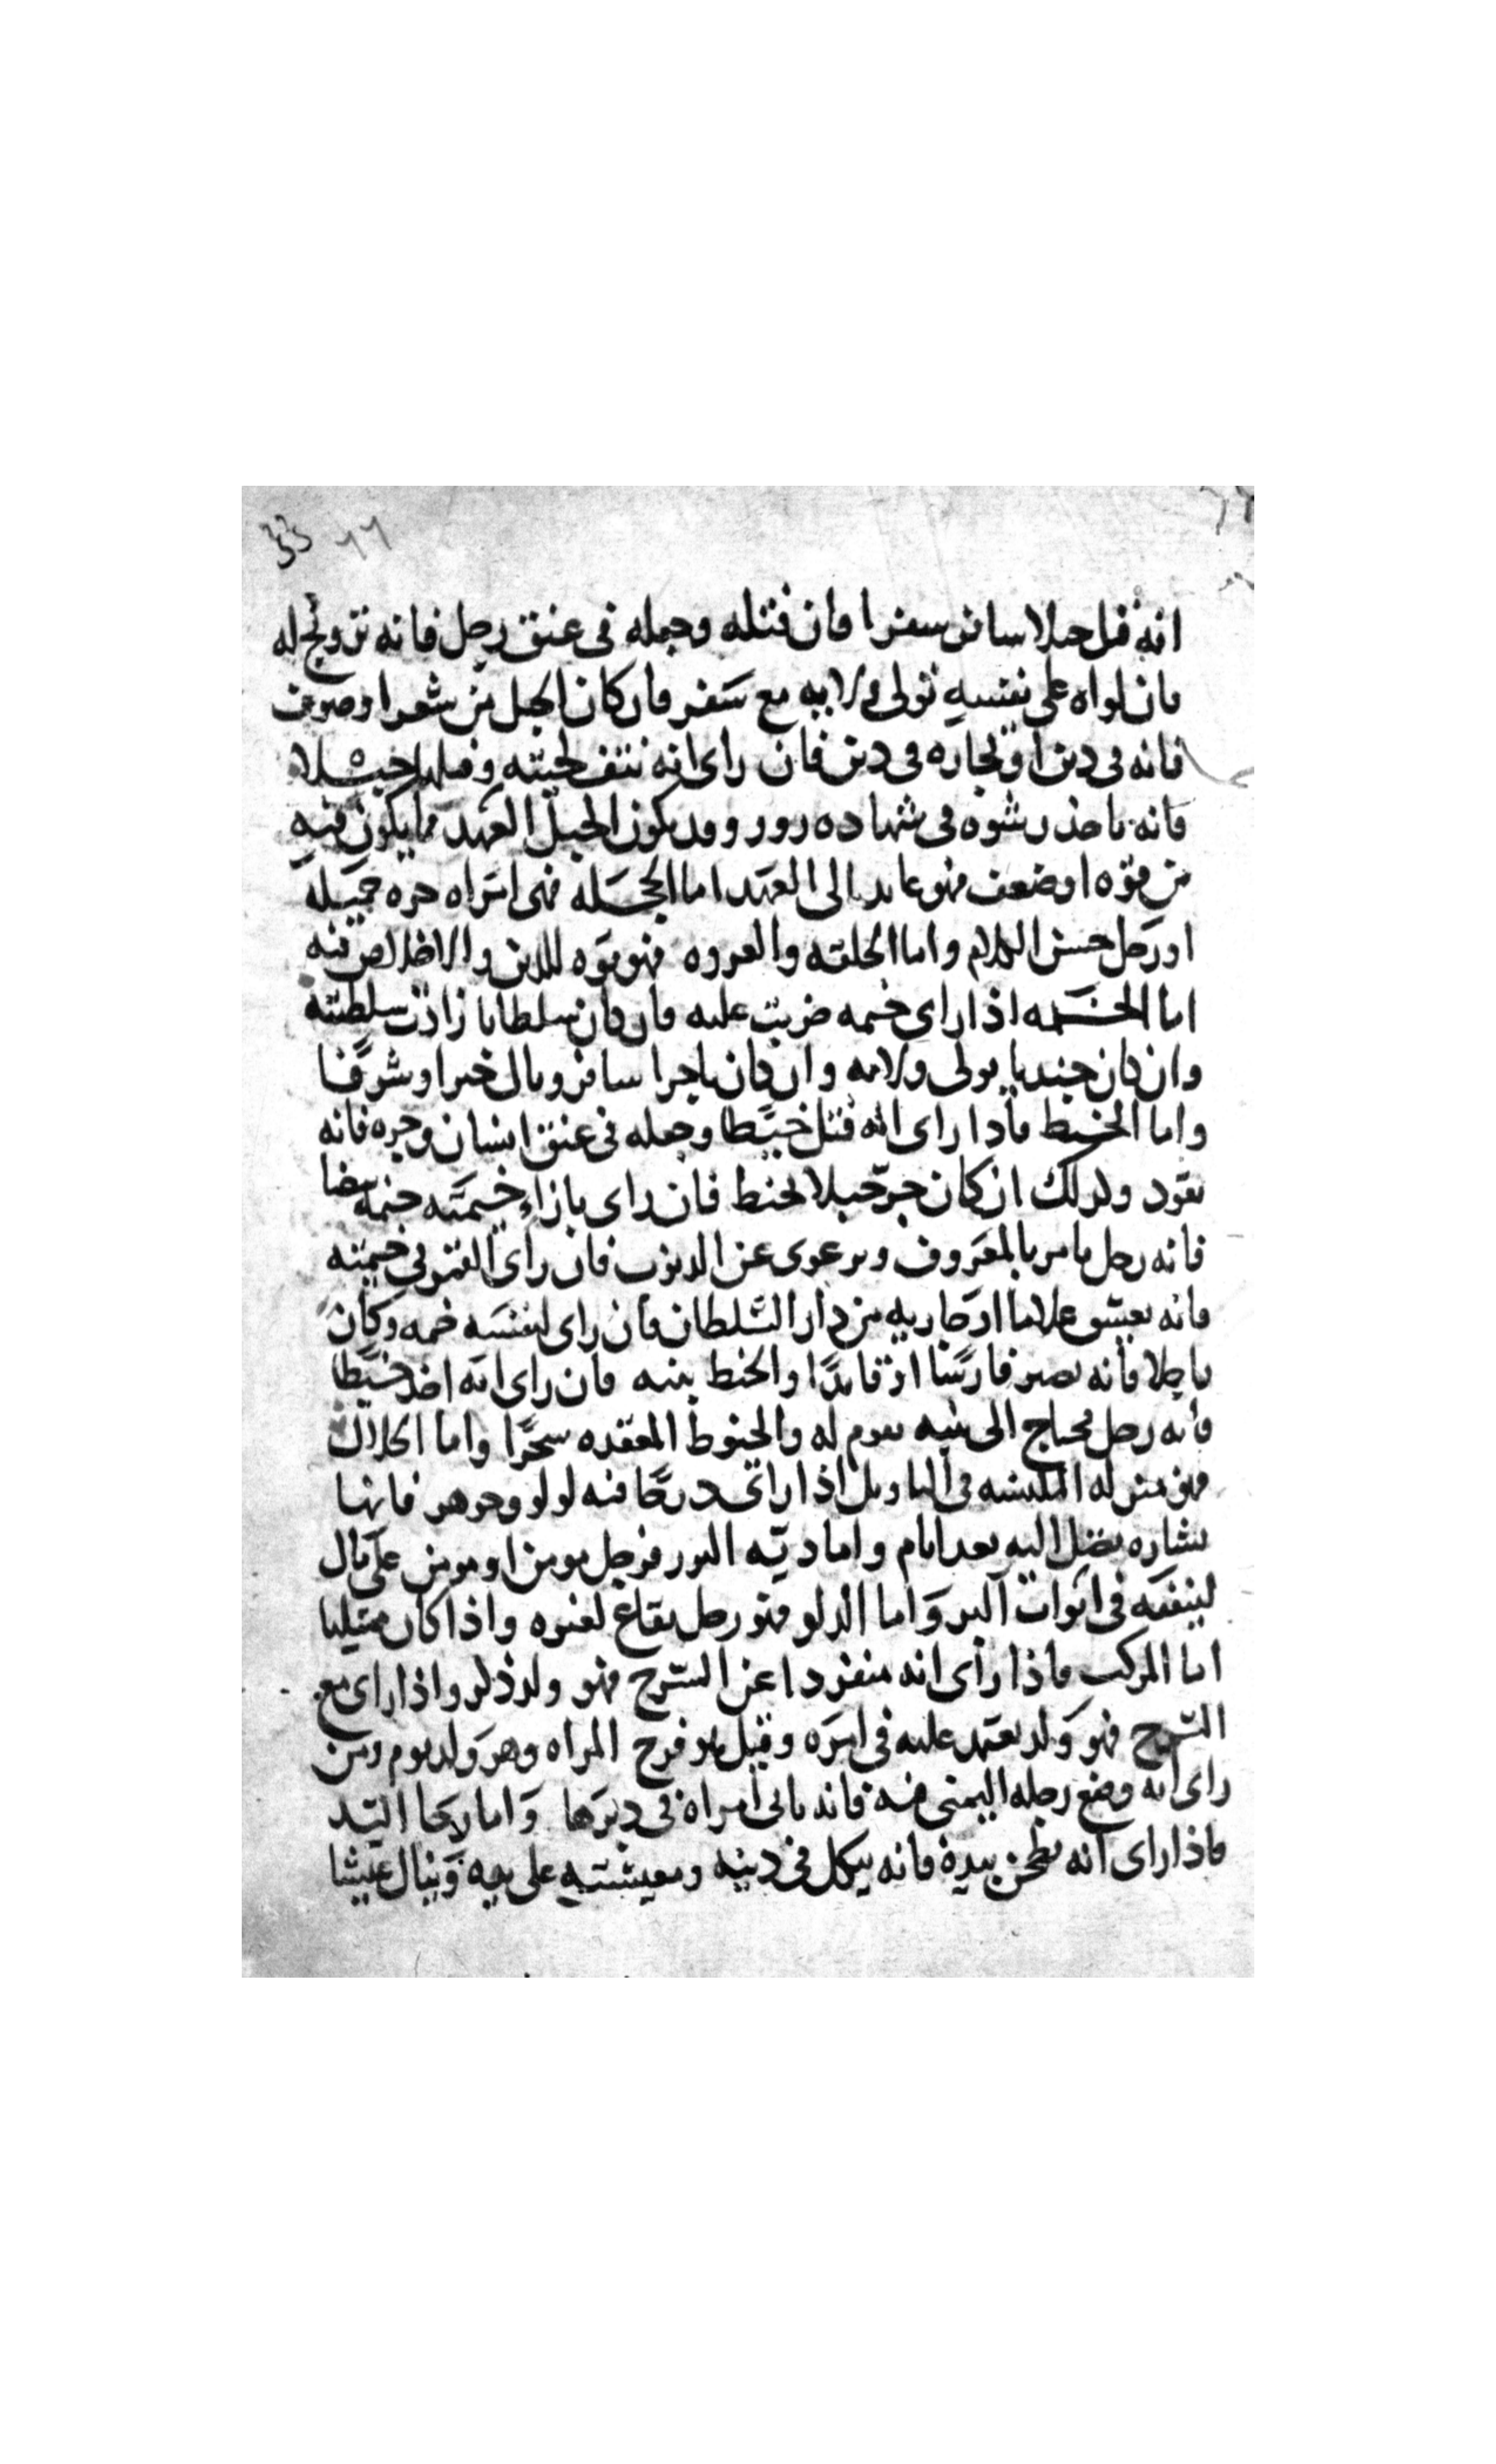 33 ٦٦
انه فتل حبلا سافر سفرا فان فتله وجعله فى عنق رجل فانه تزويج له
فان لواه على نفسه تولى ولايه مع سفر فان كان الحبل من شعر او صوف
فانه فى دين او تجاره فى دين فان راى انه نتف لحيته وفتلها حبلا
فانه ياخذ رشوه فى شهاده زور وقد يكون الحبل العهد فما يكون فيه
من قوه او ضعف فهو عايد الى العهد اما الحجله فهى امراه حره جميله
او رجل حسن الكلام واما الحلقه والعروه فهو قوه للدين والاخلاص فيه
اما الخيمه اذا راى خيمه ضربت عليه فان كان سلطانا زادت سلطنته
وان كان جنديا تولى ولايه وان كان تاجرا سافر ونال خيرا وشرفا
واما الخيط فاذا راى انه فتل خيطا وجعله فى عنق انسان وجره فانه
يقود وكذلك ان كان جر حبلا لخيط فان راى بازاء خيمته خيمه بيضا
فانه رجل يامر بالمعروف ويرعوى عن الذنوب فان راى القمر فى خيمته
فانه يعشق غلاما او جاريه من دار السلطان فان راى لنفسه خيمه وكان
راجلا فانه يصير فارسا او قايدا والخيط بينه فان راى انه اخذ خيطا
فانه رجل محتاج الى بينه تقوم له والخيوط المعقده سحرا واما
فهو منزله فى التاويل اذا راى درجا فيه لولو وجوهر فانها
بشاره تصل اليه بعد ايام واما البير فرجل مومن او مومن على مال
لينفقه فى ابواب البر واما الدلو فهو رجل لغيره واذا كان
اما المركب فاذا راى انه منفردا عن السرج فهو ولد ذكر واذا راى مع
السرج فهو ولد يعتمد عليه فى امره وقيل هو فرج المراه وهو ولد يوم ومن
راى انه وضع رجله اليمنى فيه فانه ياتى امراه فى دبرها واما رحا اليد
فاذا راى انه يطحن بيده فانه فى دينه ومعيشته على وينال عيشا